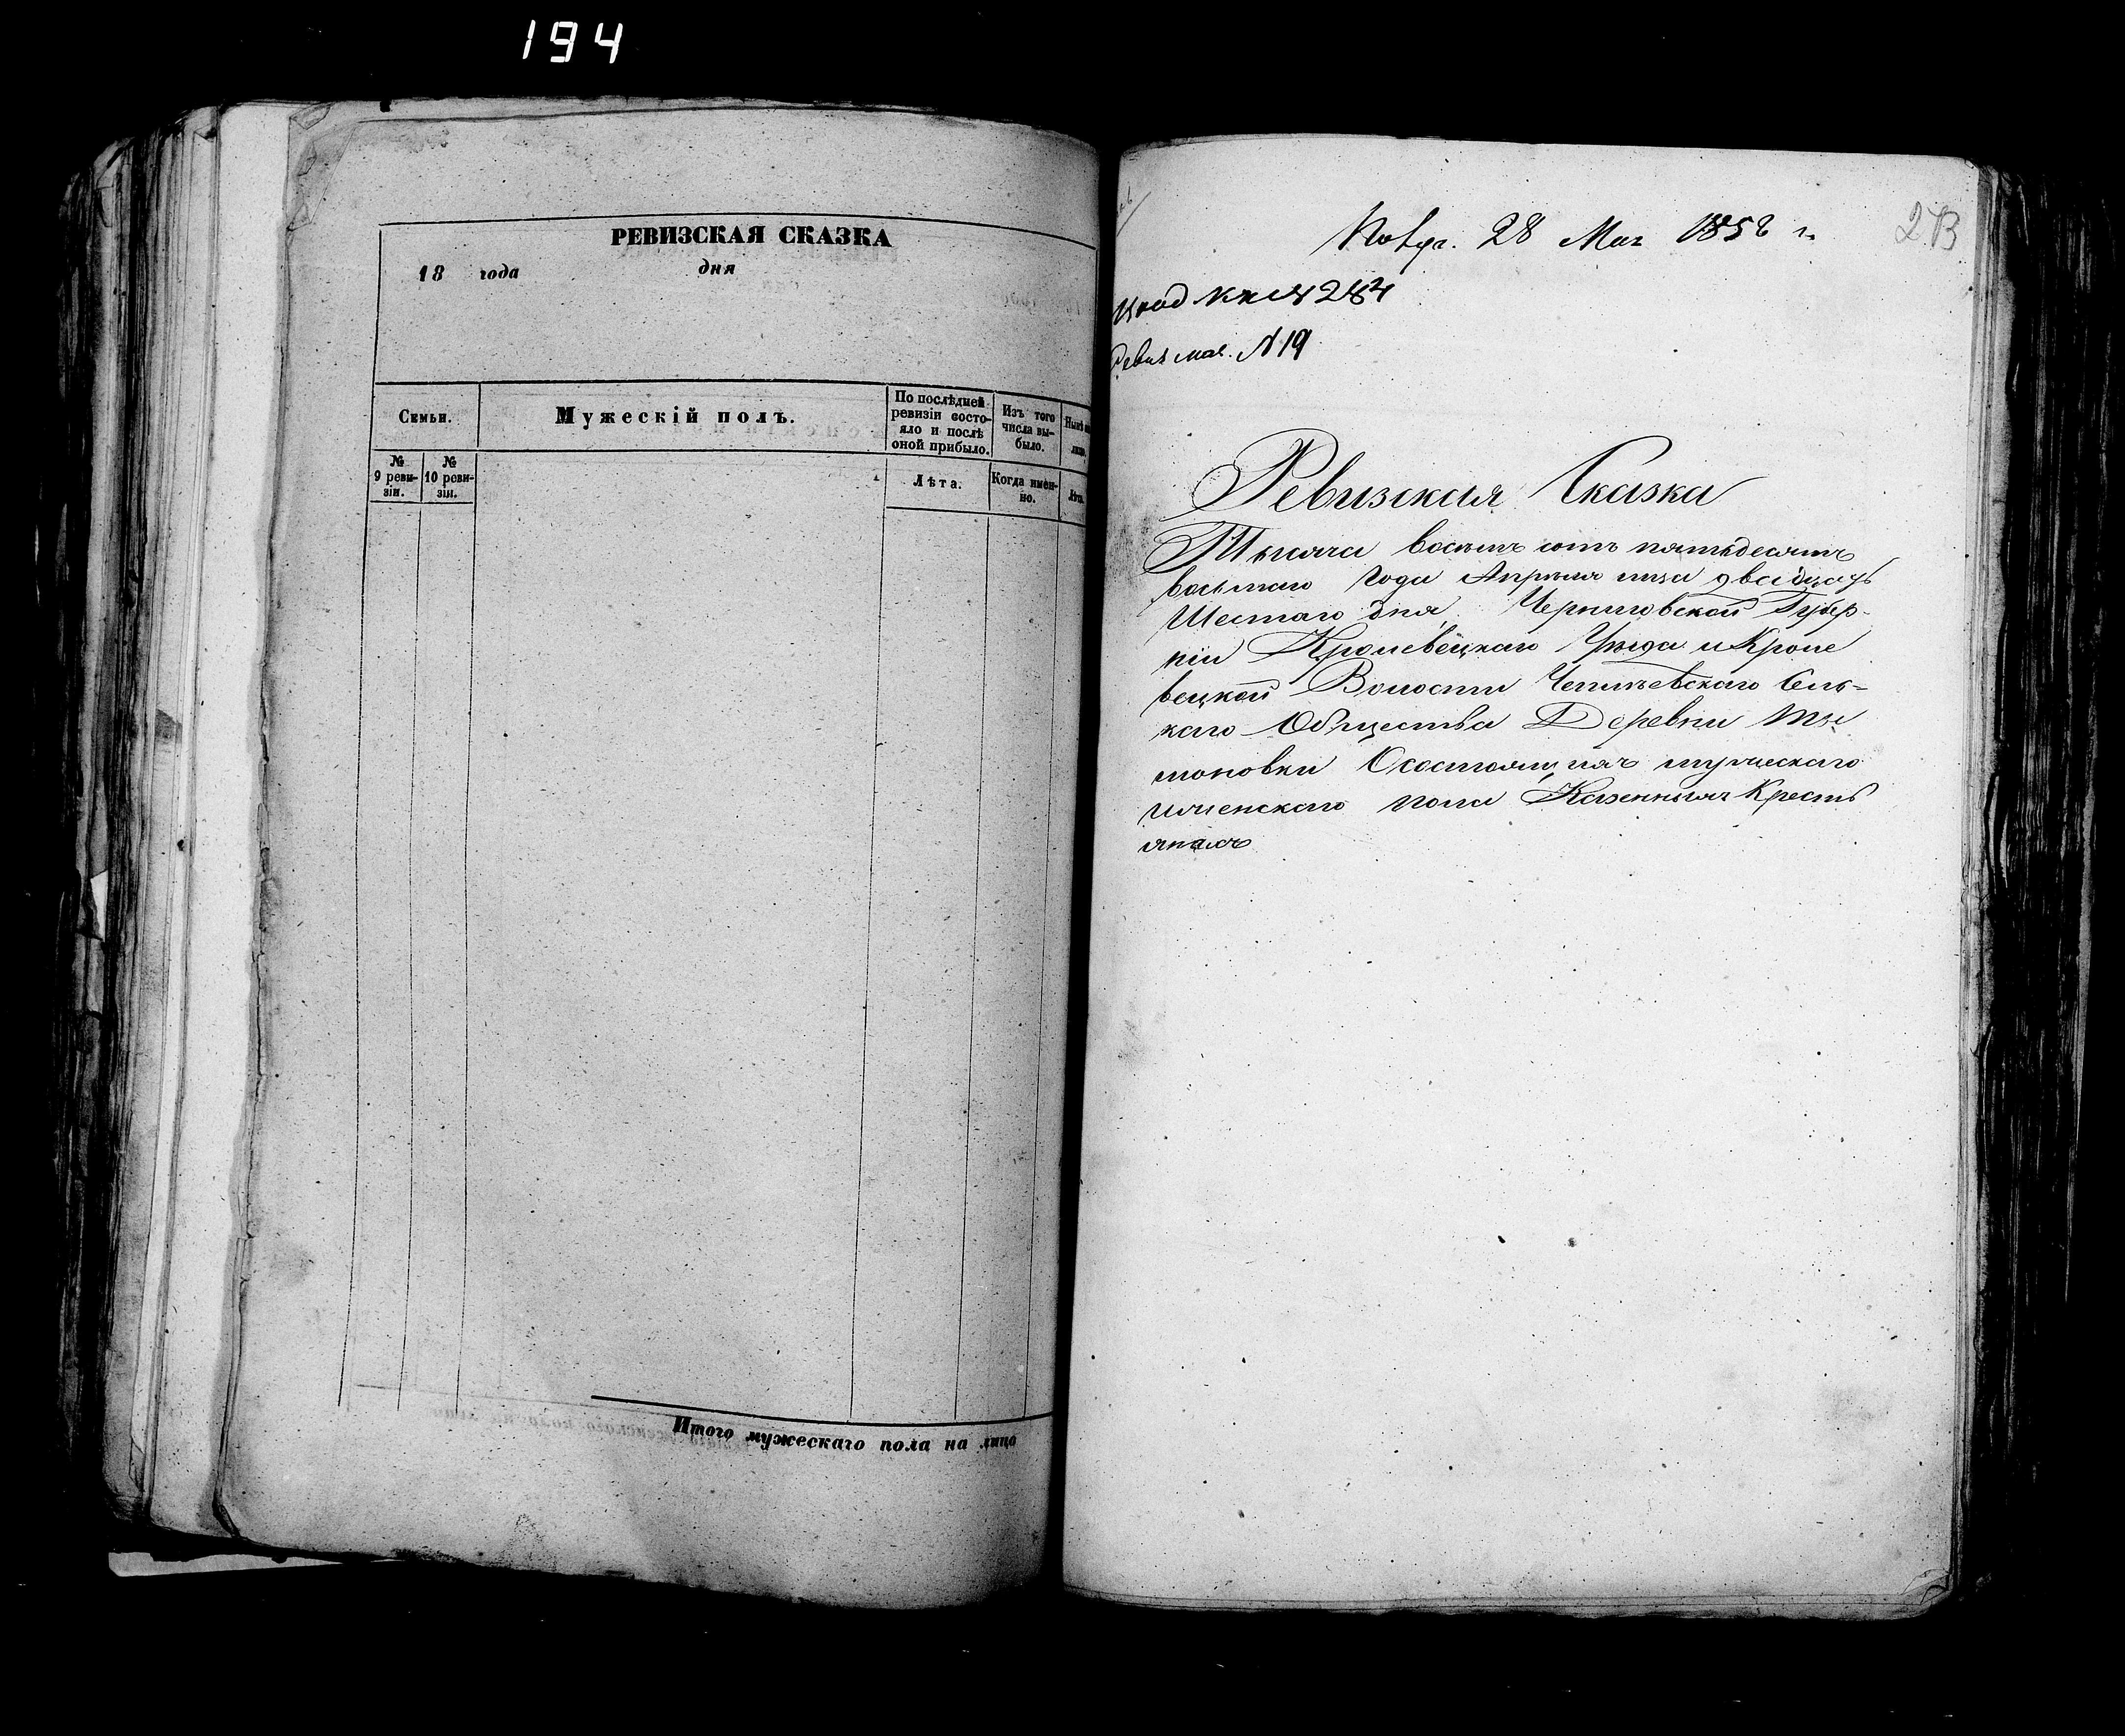 194
РЕВИЗСКАЯ СКАЗКА
18 года дня
Семьи.
Мужескій полъ.
По послѣдней
ревизіи состо-
яло и послѣ
оной прибыло.
Изъ того
числа вы-
было.
№
9 реви-
зіи.
№
10 реви-
зіи.
Лѣта.
Когда имен-
но.
Итого мужескаго пола на лицо
28 Мая 1858 г.
273
№ 19
Ревизская Сказка
Тысяча восемь сотъ пятьдесятъ
восьмаго года Апрѣля мца двадцать
Шестаго дня, Черниговской Губер-
ніи Кролевецкаго Уѣзда и Кроле
вецкой Волости Сель-
каго Общества Деревни
О состоящихъ мужескаго
иженскаго пола Казенныхъ Кресть
янахъ